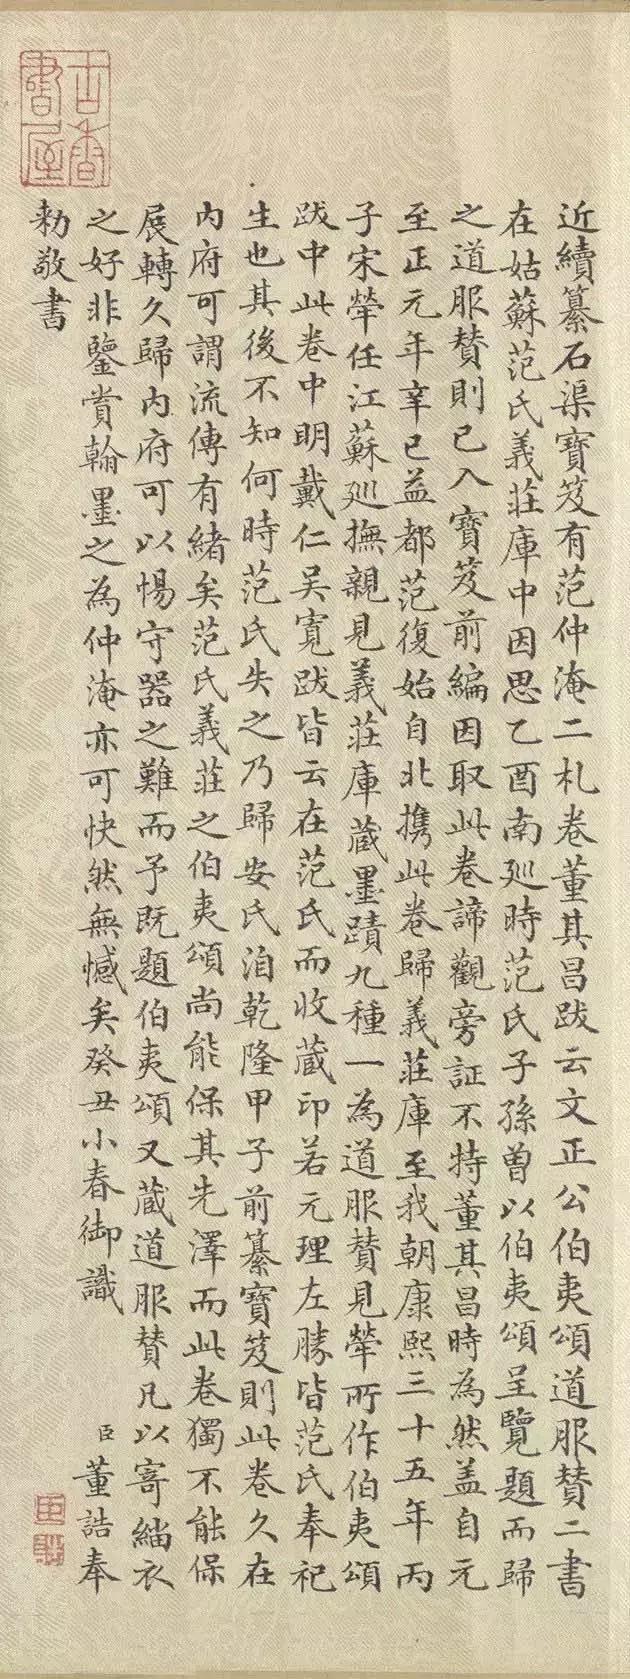 近續纂石渠寶笈有范仲淹二札卷董其昌跋云文正公伯夷頌道服贊二書
在姑蘇范氏義莊庫中因思乙酉南廵時范氏子孫曾以伯夷頌呈覽題而歸
之道服贊則已入寶笈前編因取此卷諦觀旁証不特董其昌時為然盖自元
至正元年辛巳益都范復始自北攜此卷歸義莊庫至我朝康熙三十五年丙
子宋犖任江蘇廵撫親見義莊庫藏墨蹟九種一為道服贊見犖所作伯夷頌
跋中此卷中明戴仁吴寬跋皆云在范氏而收藏印若元理左勝皆范氏奉祀
生也其後不知何時范氏失之乃歸安氏洎乾隆甲子前纂寶笈則此卷久在
內府可謂流傳有緒矣范氏義莊之伯夷頌尚能保其先澤而此卷獨不能保
展轉久歸內府可以惕守器之難而予既題伯夷頌又藏道服贊凡以寄緇衣
之好非鑒賞翰墨之為仲淹亦可快然無憾矣癸丑小春御識
臣董誥奉
勅敬書
古香書屋
臣
誥